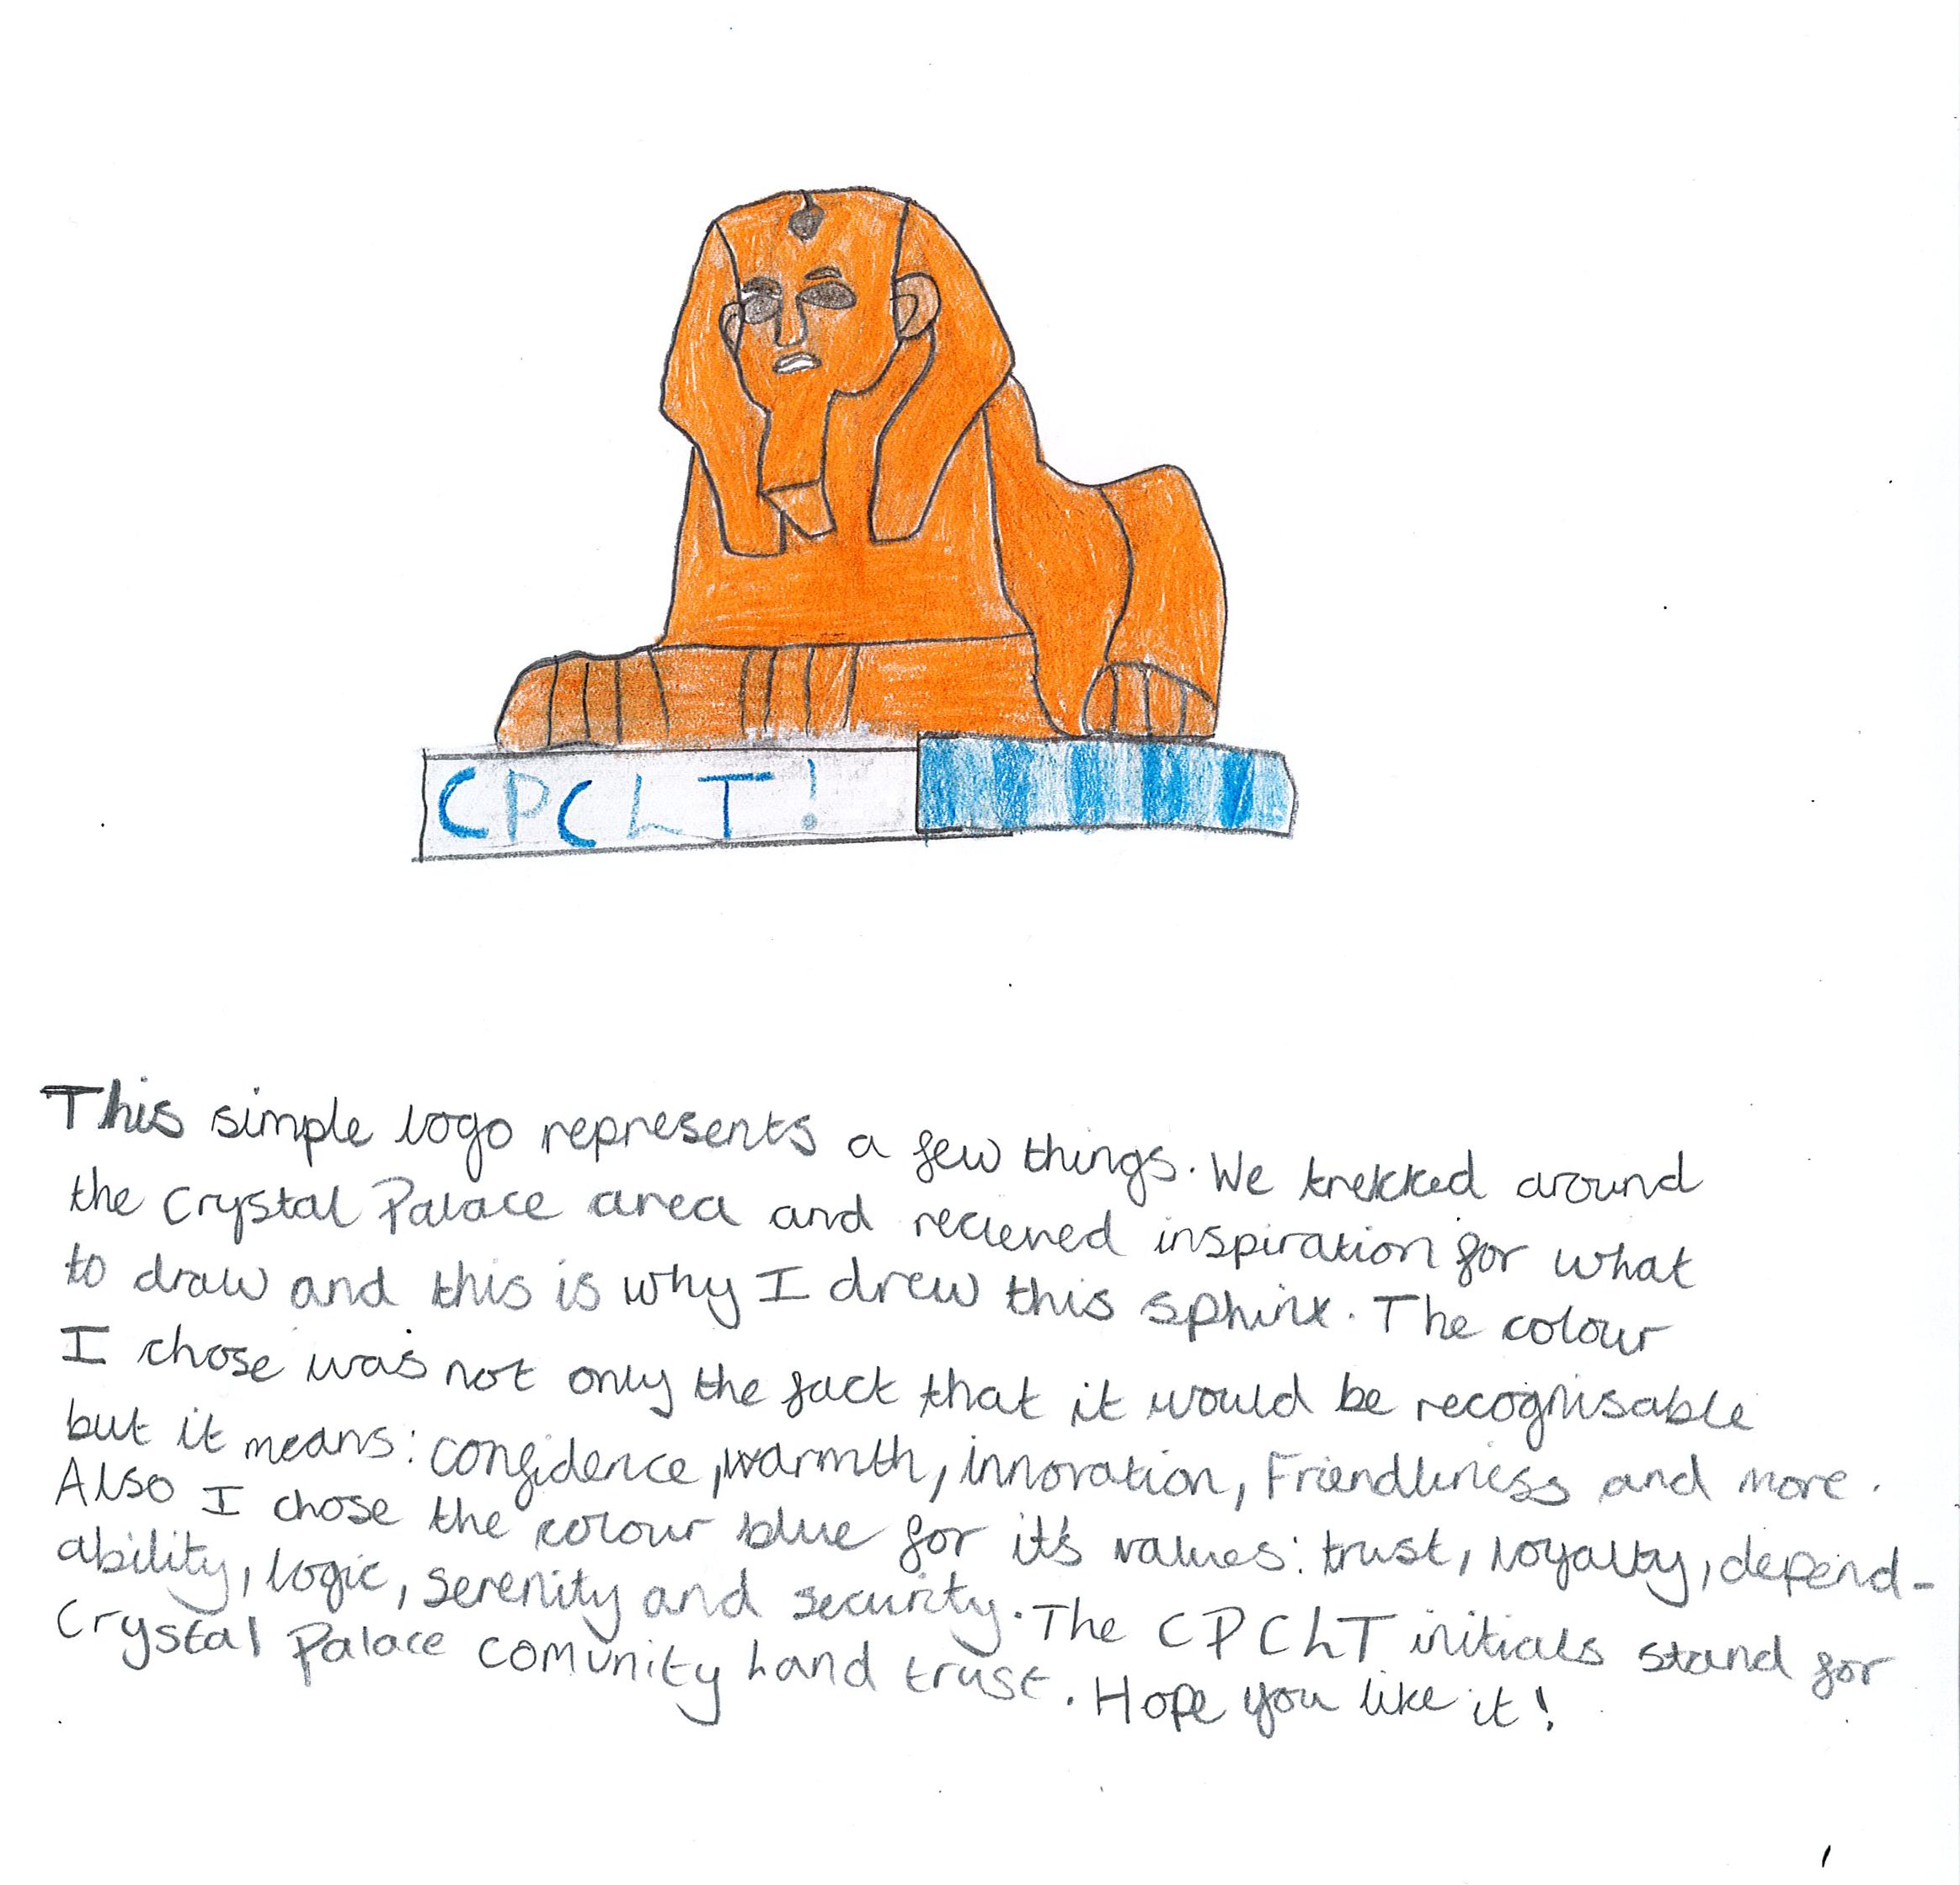 CPCLT!
This simple logo represents a few things. We trekked around
the Crystal Palace area and recieved inspiration for what
to draw and this is why I drew this sphinx. The colour
I chose was not only the fact that it would be recognisable
but it means: confidence, warmth, innovation, Friendliness and more.
Also I chose the colour blue for it's values: trust, loyalty, depend-
ability, logic, serenity and security. The CPCLT initials stand for
Crystal Palace comunity land trust. Hope you like it!